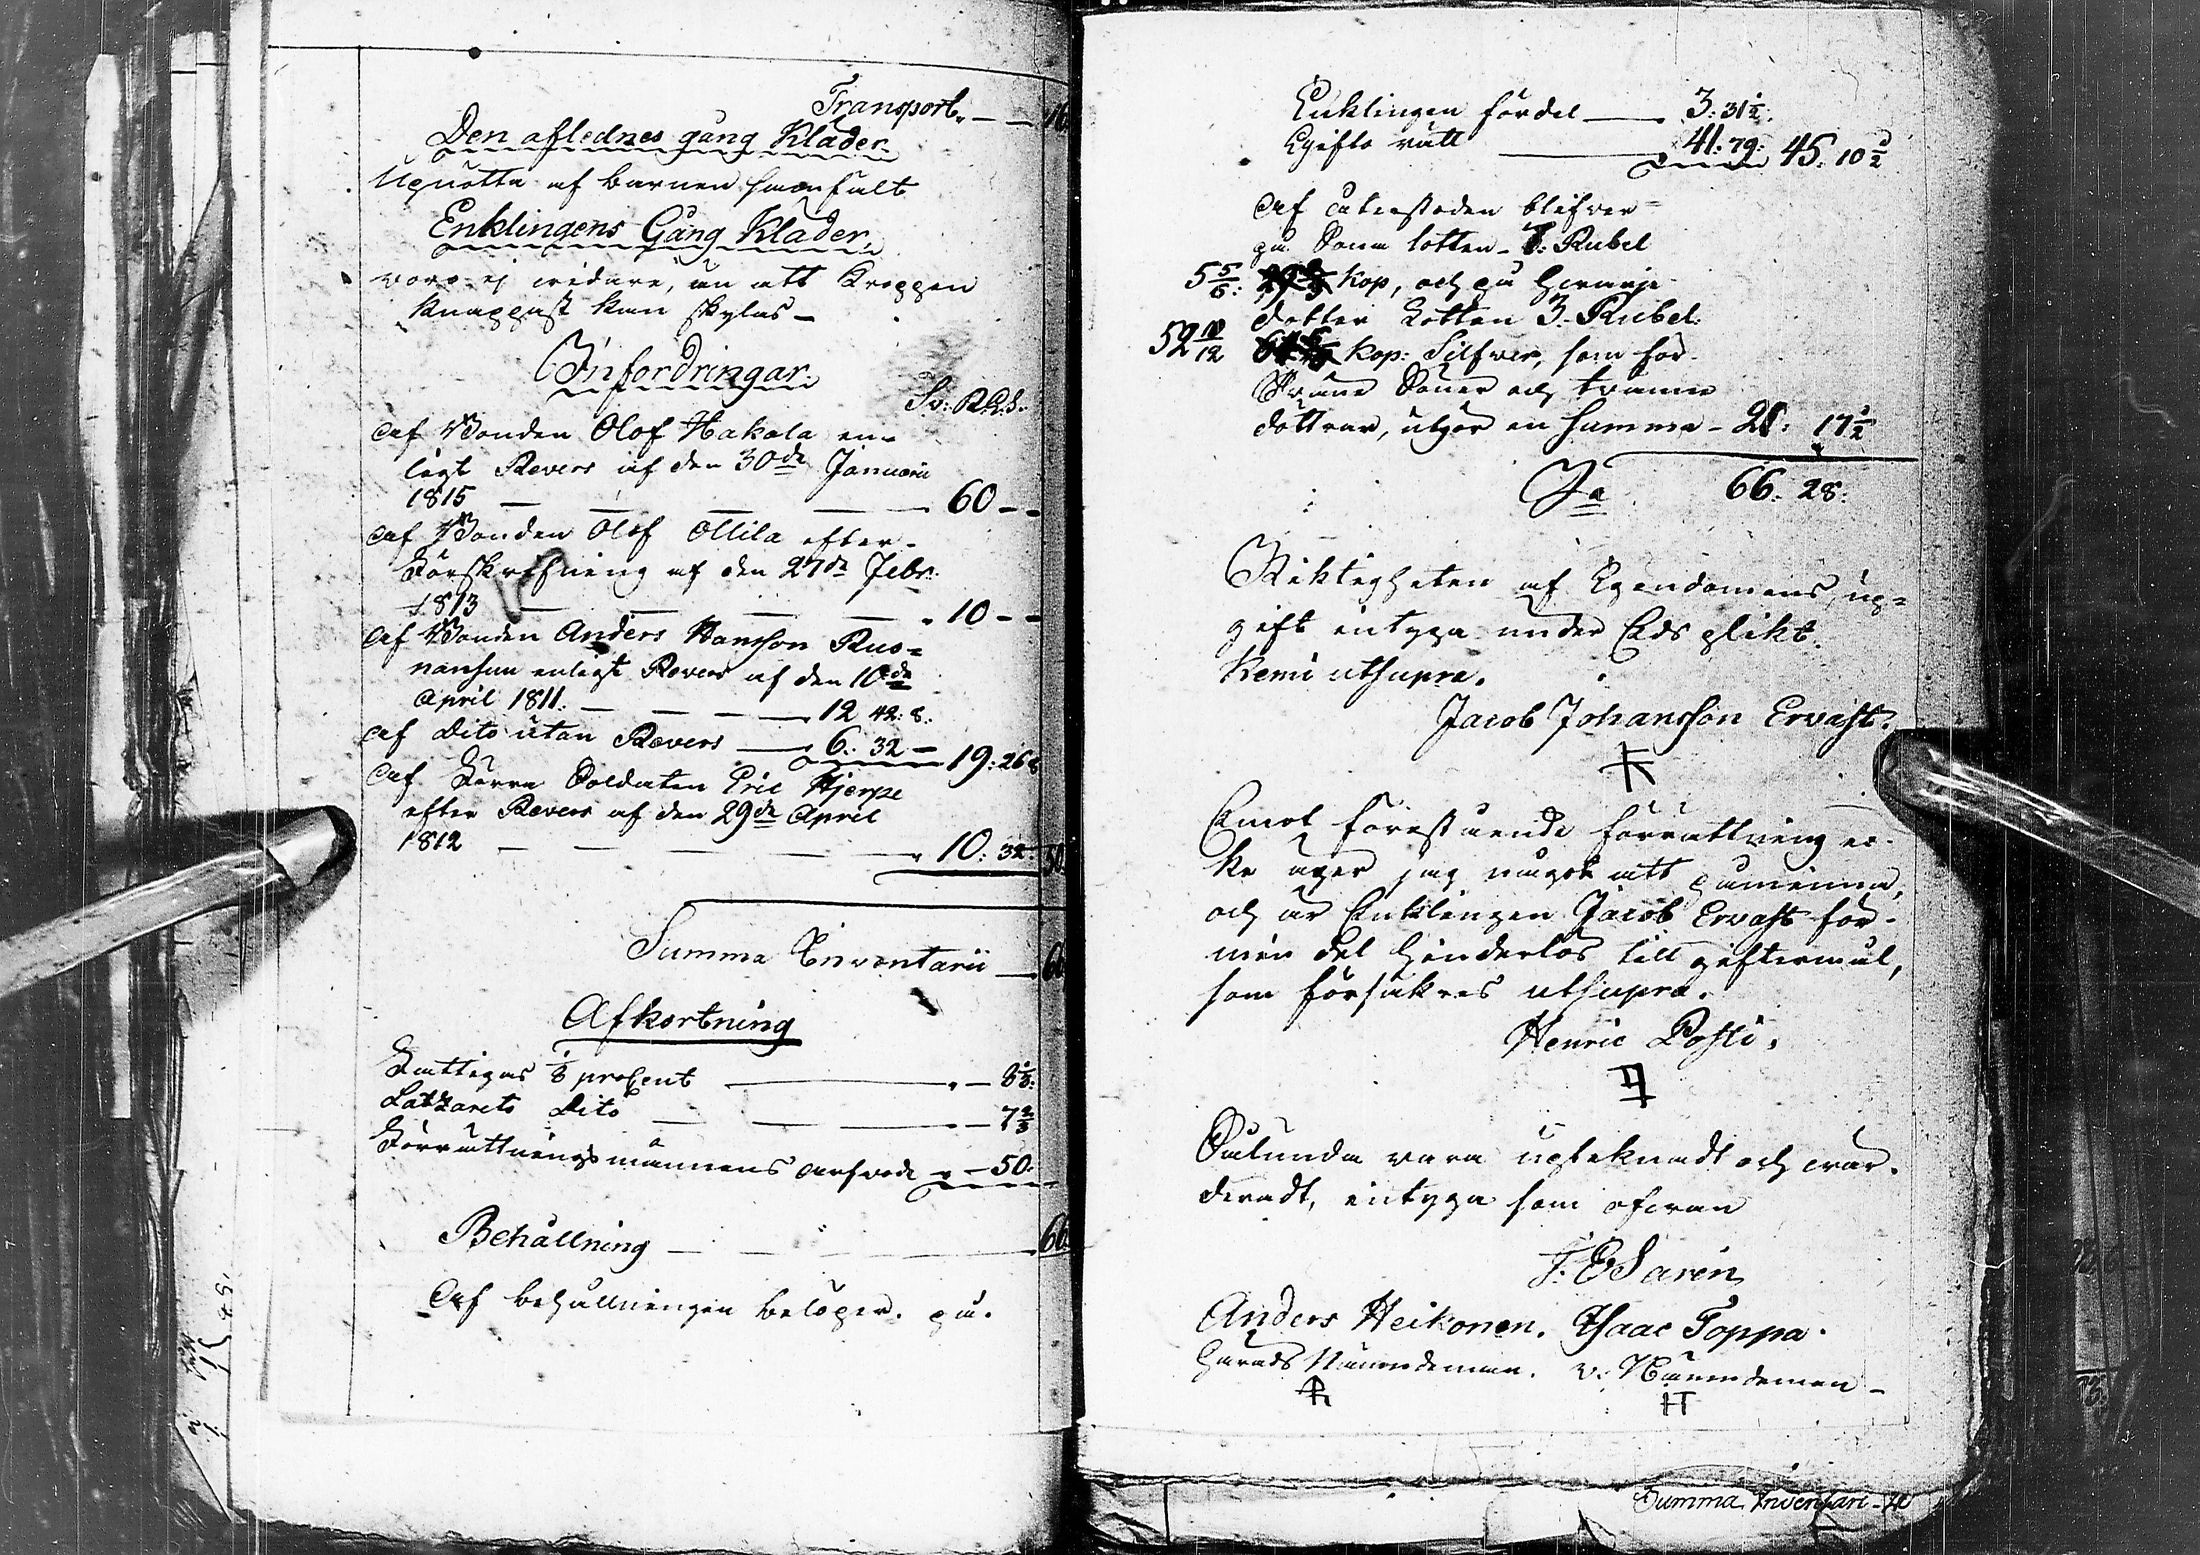 Transport „ — — 16
Den aflednes gång Kläder.
Upnötta af barnen samfält
Enklingens Gång Kläder.
voro ej vidare, än att Kroppen
knappast kan skylas —
Infordringar.
Sv: R.G.S.
Af Bonden Olof Hakola en-
ligt Revers af den 30de Januarii
1815 — — — — 60 - -
Af Bonden Olof Ollila efter
Förskrifning af den 27de Febr:
1813 — — — — „ 10 - -
Af Bonden Anders Hansson Rus=
nansuu enligt Revers af den 10de
April 1811. — — — 12 42: 8.
Af Dito utan Revers — 6: 32 — 19: 26
Af Förra Soldaten Eric Hjerpe
efter Revers af den 29de April
1812 — — — — „ 10: 32. 50
Summa Inventarii — 66
Afkortning
Fattigas 1/8 proCent — „ — 8 1/3:
Lazzarets Dito — — „ — 7 2/3
Förrättnings männens arfvode „ — 50:
Behållning — — — 66
Af behållningen belöper på
Enklingen fördel — 3: 31 1/2.
Gifto rätt — 41: 79: 45: 10 1/2
Af återstoden blifver
på Sone lotten - 7: Rubel
5 5/6: kop, och på hvarje
dotter Lotten 3. Rubel
52 11/12 kop: Silfver, som för
tvänne Söner och tvänne
döttrar, utgör en Summa - 21: 17 1/2
Sa 66. 28:
Riktigheten af Egendomens up=
gift intyga under Eds plikt.
Kemi utsupra.
Jacob Johansson Ervast.
Emot förestående förrättning ic-
ke äger jag något att påminna,
och är Enklingen Jacob Ervast för
min del hinderlös till giftermål,
som försäkras utsupra.
Henric Posti.
Sålunda vara upteknadt och vär-
deradt, intyga som ofvan
J: E Sarén
Anders Heikonen. Isaac Toppa.
Härads Nämndeman. v. Nämndeman —
Summa Inventari -